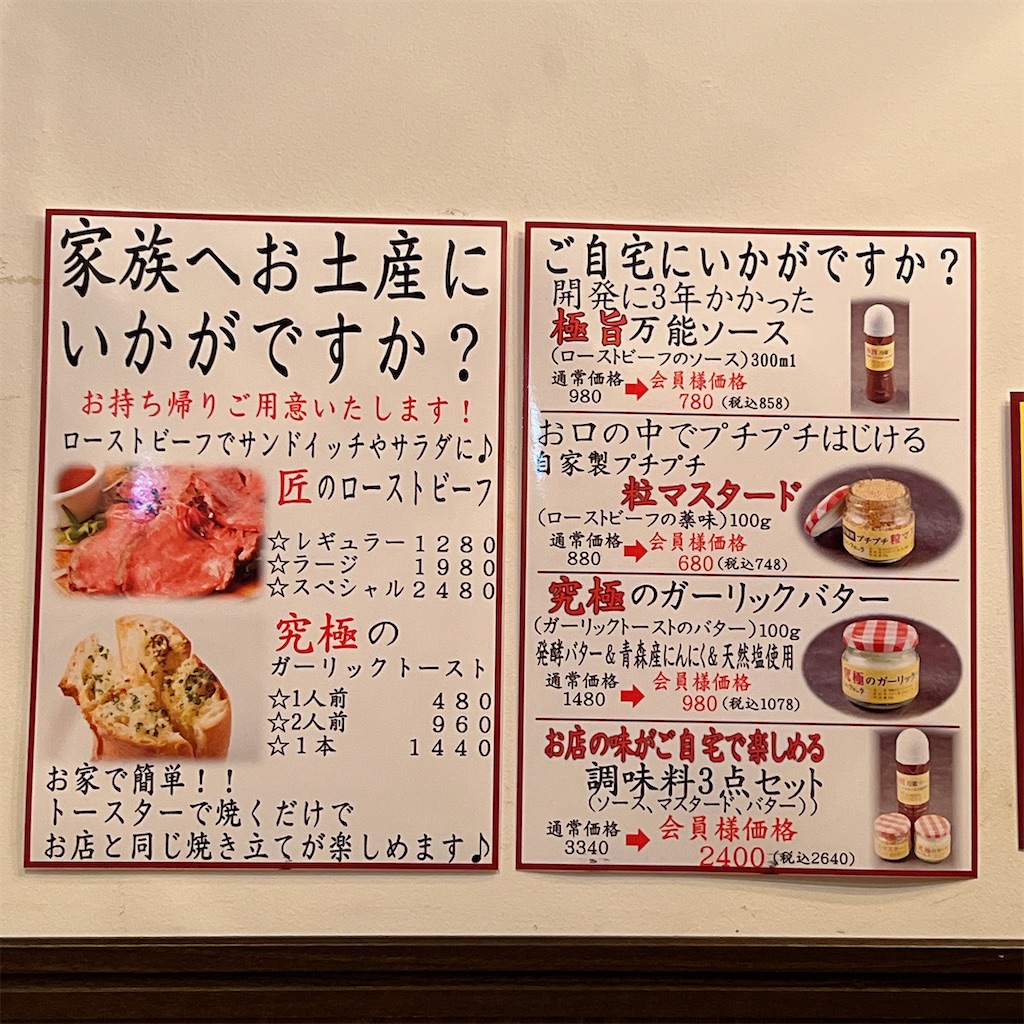 家族へお土産に
いかがですか？
お持ち帰りご用意いたします！
ローストビーフでサンドイッチやサラダに♪
匠のローストビーフ
☆レギュラー1280
☆ラージ 1980
☆スペシャル2480
究極の
ガーリックトースト
☆1人前 480
☆2人前 960
☆1本 1440
お家で簡単！！
トースターで焼くだけで
お店と同じ焼き立てが楽しめます♪
ご自宅にいかがですか？
開発に3年かかった
極旨万能ソース
(ローストビーフのソース)300ml
通常価格➡会員様価格
980 780(税込858)
お口の中でプチプチはじける
自家製プチプチ
粒マスタード
(ローストビーフの薬味)100g
通常価格➡会員様価格
880 680(税込748)
究極のガーリックバター
(ガーリックトーストのバター)100g
発酵バター&青森産にんにく&天然塩使用
通常価格➡会員様価格
1480 980(税込1078)
お店の味がご自宅で楽しめる
調味料3点セット
(ソース、マスタード、バター))
通常価格➡会員様価格
3340 2400(税込2640)
プチプチ粒マ
究極のガーリック